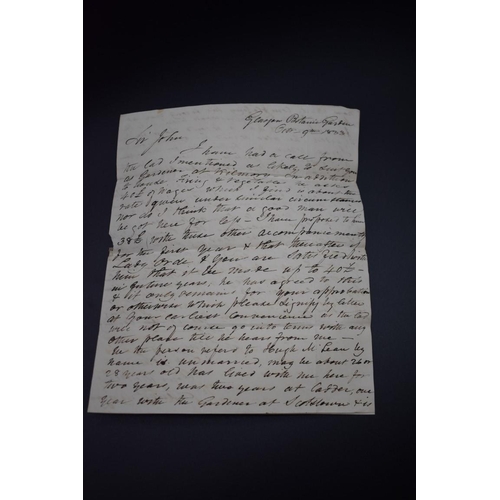 Glasgow Botanic Garden
Octr 9th 1853
Sir John
I have had a call from
the lad I mentioned as likely to suit you
as Gardener at Kilmory in addition
to house, firing, & vegetables he asks
40£ of wages which I find is about the
rate given under similar circumstances
nor do I think that a good man will
be got here for less — I have proposed to him
38£ with those other accompaniments
for the first year & that thereafter if
Lady Orde & you are satisfied with
him that it be made up to 40£
in future years, he has agreed to this
& it only remains for your approbation
or otherwise which please signify by letter
at your earliest convenience as the lad
will not of course go into terms with any
other place till he hears from me —
the person refers to Hugh McLean by
name is unmarried, may be about 26 or
28 year old has lived with me here for
two years, was two years at Calder, one
year with the Gardener at Scotstown & is